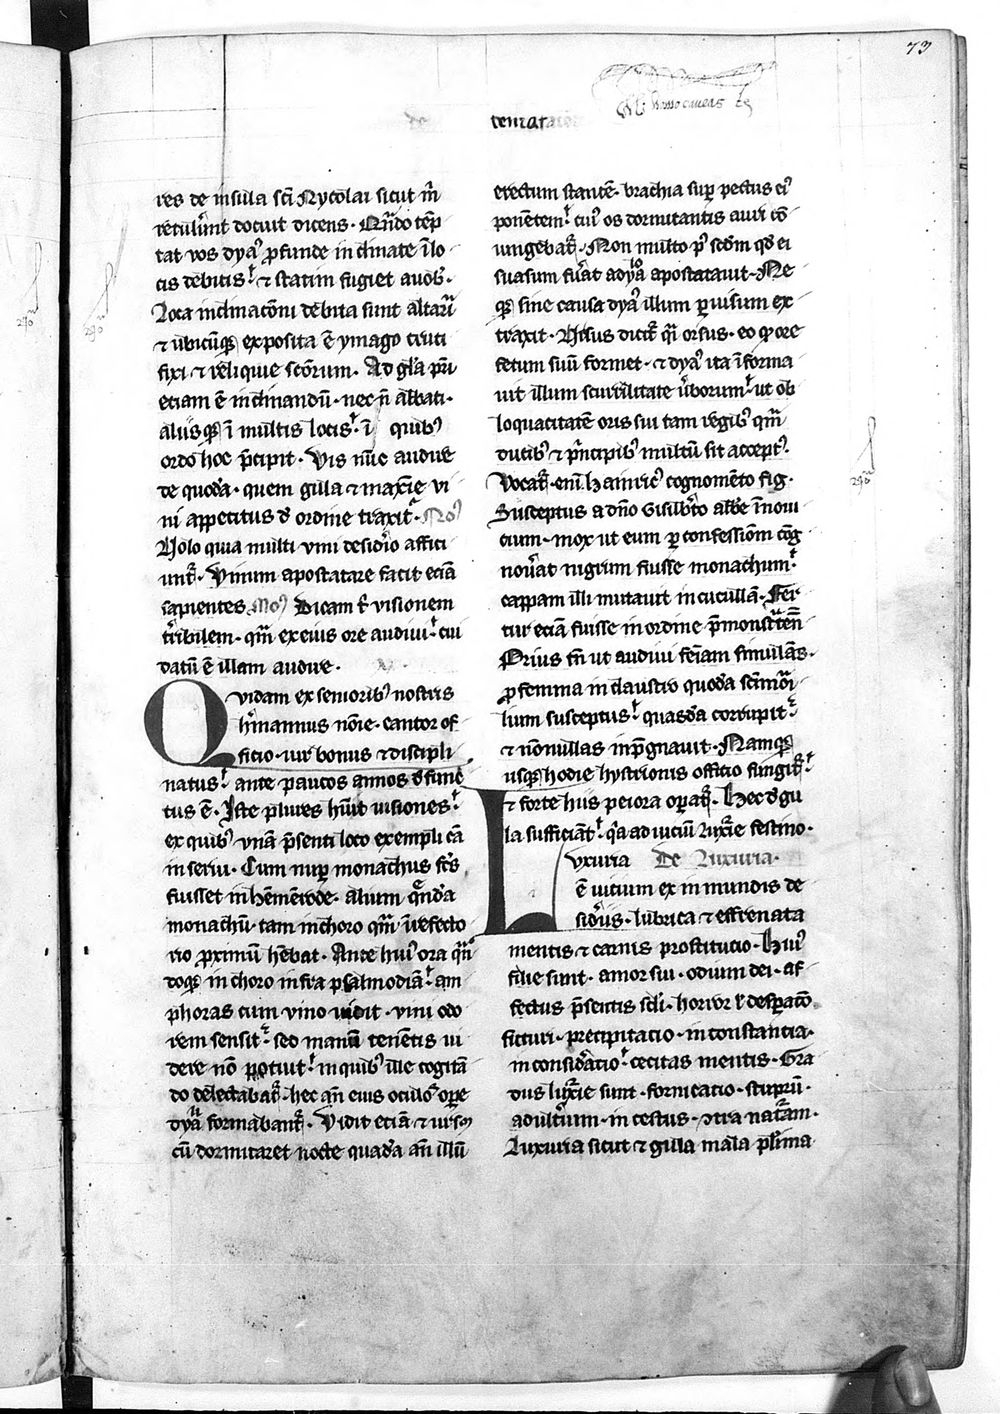 73
temtat
res de insula sci Nycolai sicut m̄
retulīnt docuit dicens. Qn̄do tēp
tat vos dyaꝰ ꝓfunde inclinate ī lo
cis debitis. ⁊ statim fugiet a uob̄.
Loca inclinacōni debita sunt altariū
⁊ ubicūqꝫ exposita ē ymago cruci
fixi ⁊ reliquie scōrum. Ad gl̄a pr̄i
eciam ē inclinandū. nec n̄ abbati.
aliisqꝫ ī multis locis. ī quibꝰ
ordo hoc p̄cipit. Vis nūc audire
de quodā. quem gula ⁊ maxīe vi
ni appetitus d̄ ordine traxit. Noꝰ
Nolo quia multi vini desidīo affici
unt̄. Vinum apostatare facit eciā
sapientes Moꝰ Dicam t̄ visionem
tīribilem. qm̄ ex eius ore audiui. cui
datū ē illam audire.
Quidam ex senioribꝰ nostris
hīmannus nōie. cantor of
ficio. uir bonus ⁊ discipli
natus. ante paucos annos defunc
tus ē. Iste plures hūit uisiones.
ex quibꝰ vnā p̄senti loco exempli cā
inseriu. Cum nup̄ monachus fcs̄
fuisset in hēmērode. alium qn̄dā
monachū. tam in choro qm̄ ī refecto
rio ꝓximū hēbat. Ante huiꝰ ora qn̄
doqꝫ in choro infra psalmodiā. am
phoras cum vino uidit. vini odo
rem sensit. sed manū tenentis ui
dere nō potuit. in quibꝰ ille cogitā
do delectabat̄. hec an̄ eius oculos ope
dyaꝉi formabant̄. Vidit eciā ⁊ ursū
cū dormitaret nocte quadā an̄ illū
erectum stantē. brachia sup̄ pectus eiꝰ
ponētem. cuiꝰ os dormitantis auri cō
iungebat̄. Non multo pꝰ scd̄m qd̄ ei
suasum fuāt a dyalo apostatauit. Ne
qꝫ sine causa dyaꝰ illum ꝑ uisum ex
traxit. Ursus dicit̄ q̄i orsus. eo qꝫ ore
fetum suū formet. ⁊ dyaꝰ ita īforma
uit illum scurrilitate ūborum. ut ob
loquacitatē oris sui tam regibꝰ qm̄
ducibꝰ ⁊ pīncipibꝰ multū sit acceptꝰ.
Vocat̄. enī. hainricꝰ cognomēto fig.
Susceptus a dn̄o Gisilbīto abb̄e īnoui
cium. mox ut eum ꝑ confessiōm cōg
nouāt nigrum fuisse monachum.
cappam illi mutauit in cucullā. Fer
tur eciā fuisse in ordine p̄monstāten̄
Prius tn̄ ut audiui feīam simulās.
ꝓ femma in claustro quodā scīmōi
lium susceptus. quasdā corrupit.
⁊ nōnullas inp̄gnauit. Namqꝫ
usqꝫ hodie hystrionis officio fungit̄.
⁊ forte hiis peiora opat̄. Hec d̄ gu
la sufficiāt. qa ad uiciū luxīe festino.
Luxuria De Luxuria.
ē uicium ex in mundis de
sidīiis. lubrica ⁊ effrenata
mentis ⁊ carnis prostitucio. Huiꝰ
filie sunt. amor sui. odium dei. af
fectus p̄sentis scl̄i. horror ł despacō
futuri. precipitacio. inconstancia.
inconsidāatio. cecitas mentis. Gra
dus luxīe sunt. fornicatio. stuprū.
adultīium. incestus. ↄtra natām.
Luxuria sicut ⁊ gula mala pl̄ima